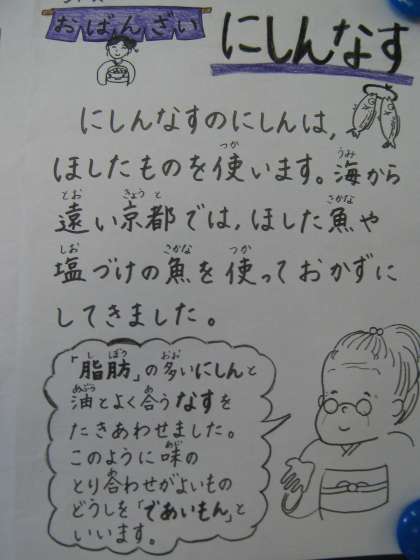 おばんざい
にしんなす
にしんなすのにしんは,
ほしたものを使います。海から
遠い京都では,ほした魚や
塩づけの魚を使っておかずに
してきました。
「脂肪」の多いにしんと
油とよく合うなすを
たきあわせました。
このように味の
とり合わせがよいもの
どうしを「であいもん」と
いいます。